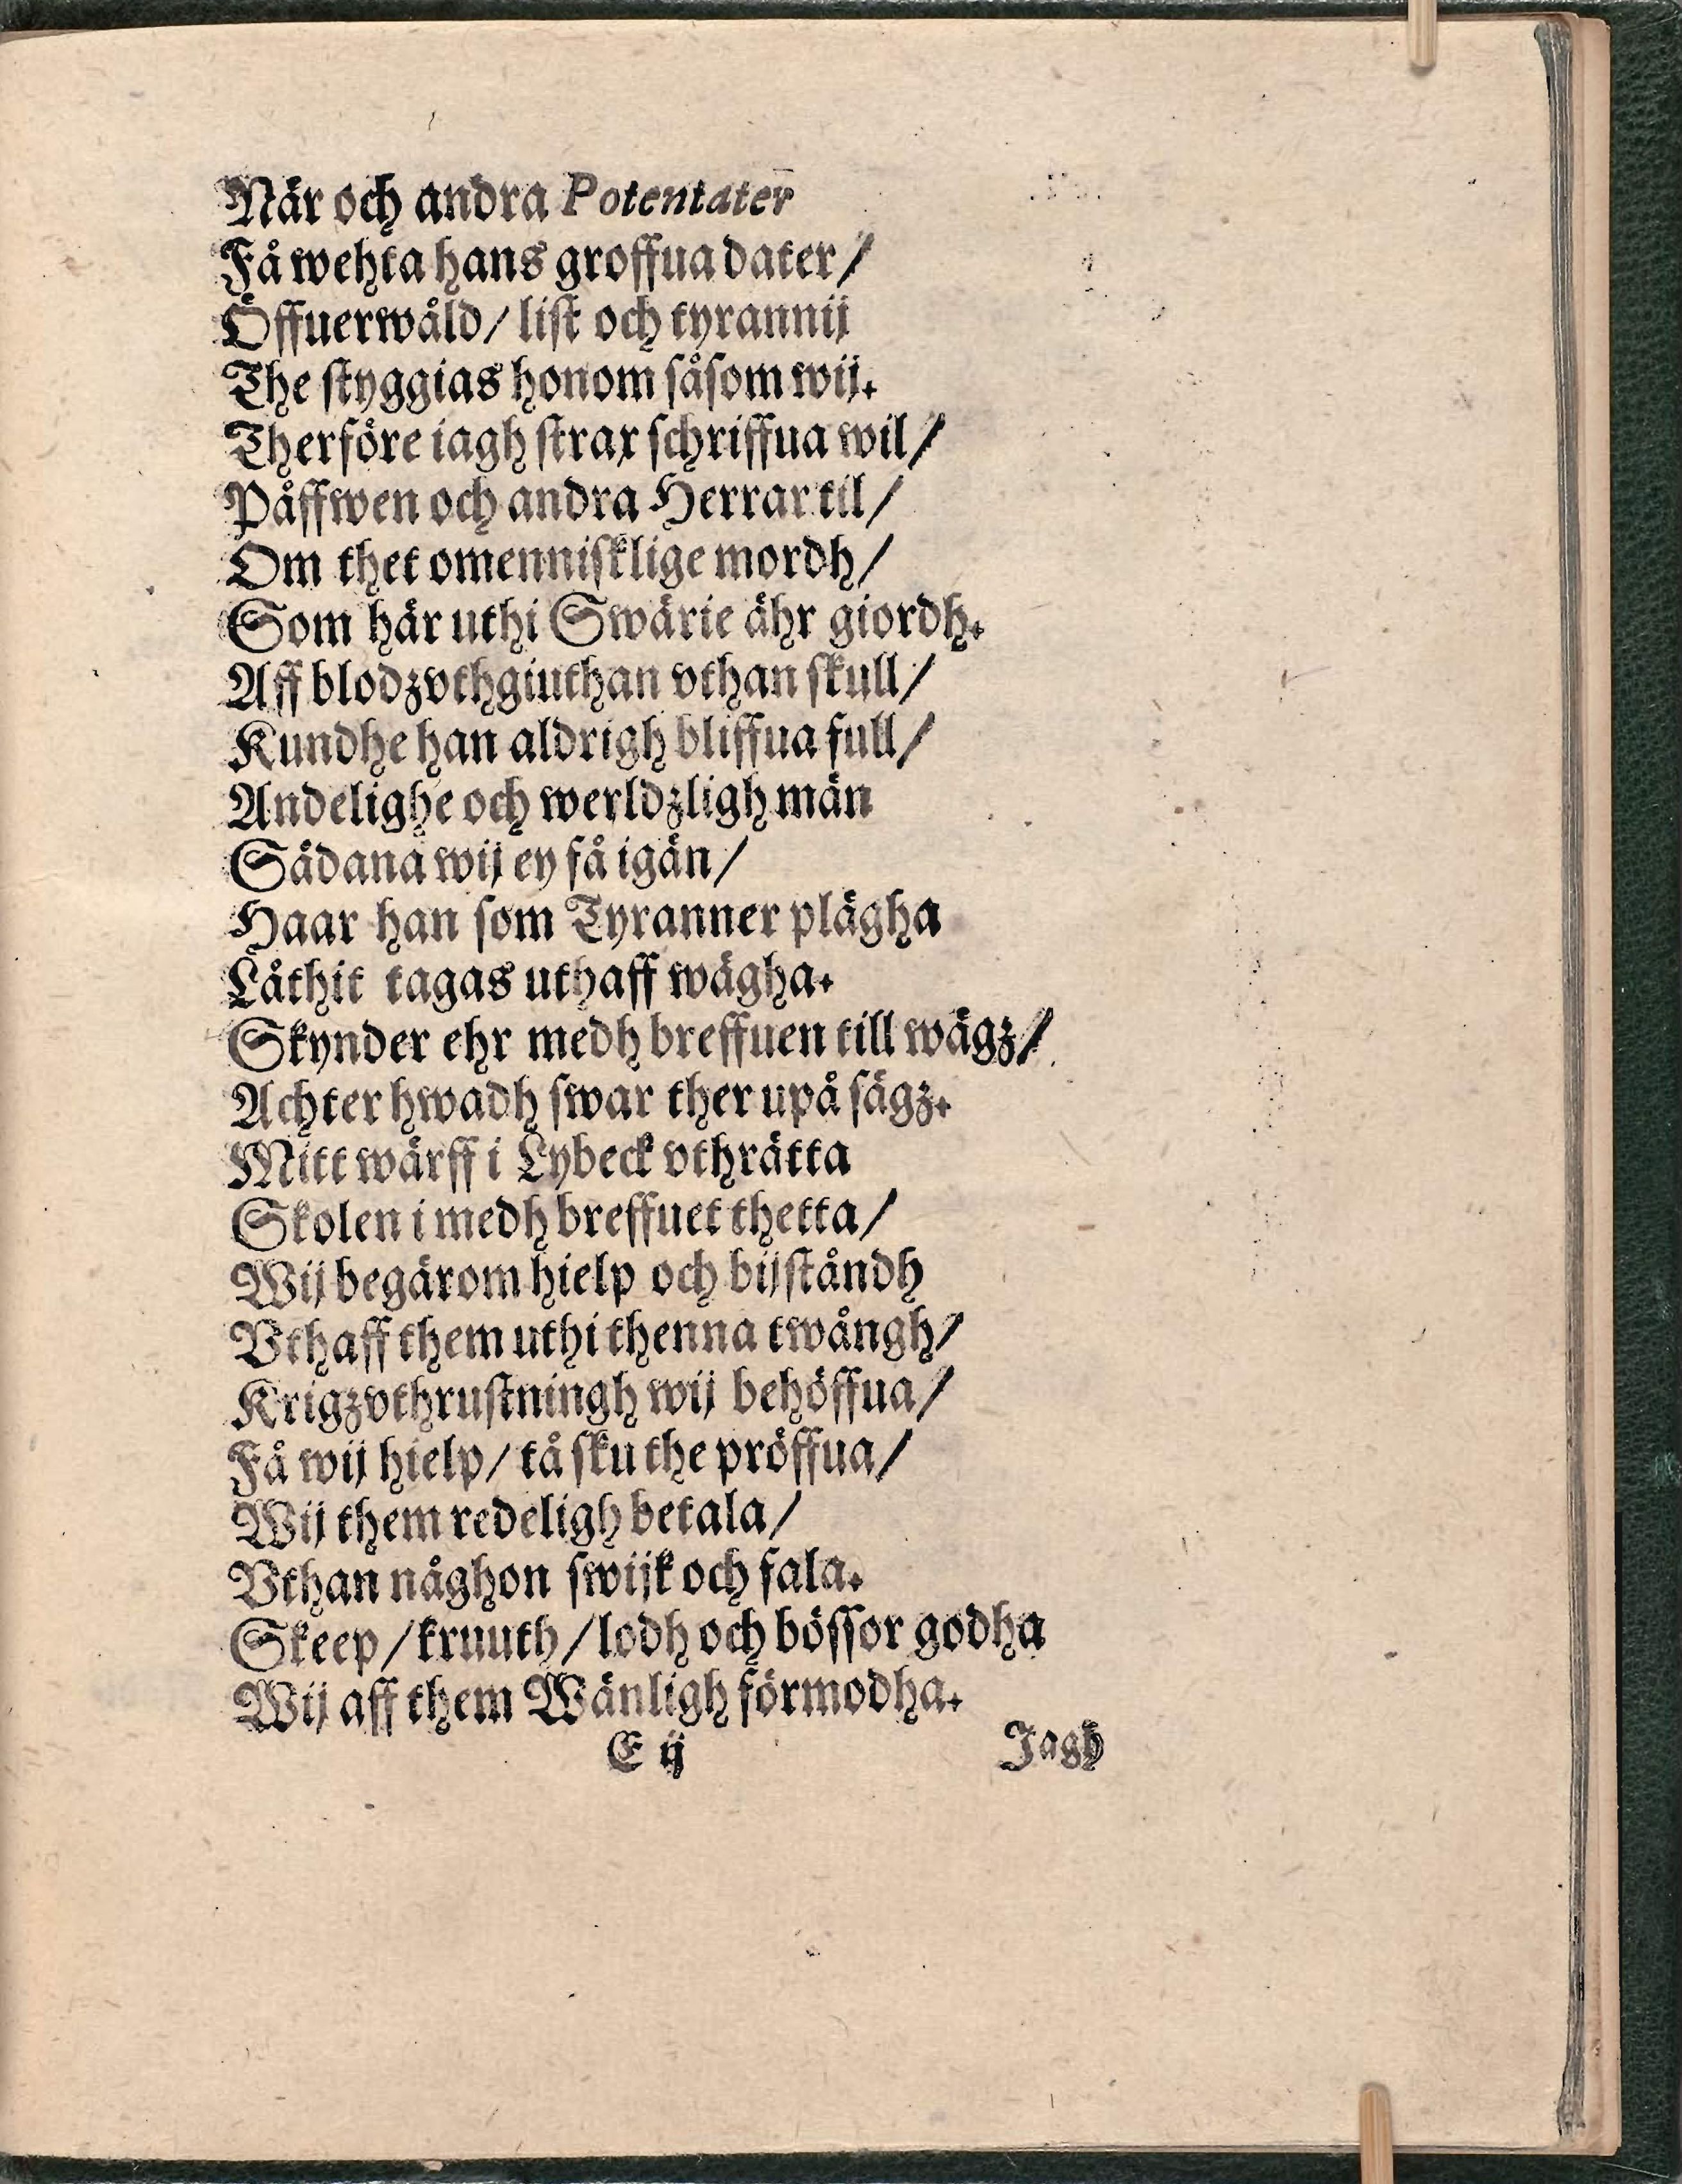 När och andra Potentater̄
Få wehta hans groffua dater/
Öffuerwåld/ list och tyrannij
The styggias honom såsom wij.
Therföre iagh strax schriffua wil/
Påffwen och andra Herrar til/
Om thet omennisklige mordh/
Som här uthi Swärie ähr giordh.
Aff blodzvthgiuthan vthan skull/
Kundhe han aldrigh bliffua full/
Andelighe och werldzligh män
Sådana wij ey få igän/
Haar han som Tyranner plägha
Låthit tagas uthaff wägha.
Skynder ehr medh breffuen till wägz/
Achter hwadh swar ther upå sägz.
Mitt wärff i Lybeck vthrätta
Skolen i medh breffuet thetta/
Wij begärom hielp och bijståndh
Vthaff them uthi thenna twångh/
Krigzvthrustningh wij behöffua/
Få wij hielp/ tå sku the pröffua/
Wij them redeligh betala/
Vthan någhon swijk och fala.
Skeep/ kruuth/ lodh och bössor godha
Wij aff them Wänligh förmodha.
E ij Jagh